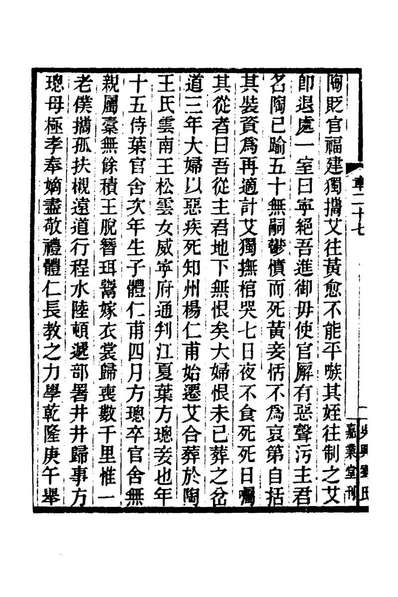 陶貶官福建獨攜艾往黃愈不能平嗾其姪往制之艾
卽退處一室曰寧絕吾進御毋使官廨有惡聲污主君
名陶已踰五十無嗣鬱憤而死黃妾恬不爲哀第自括
其裝資爲再適計艾獨撫棺哭七日夜不食死死日囑
其從者曰吾從主君地下無恨矣大婦恨未已葬之岔
道三年大婦以惡疾死知州楊仁甫始遷艾合葬於陶
王氏雲南王松雲女威寧府通判江夏葉方璁妾也年
十五侍葉官舍次年生子體仁甫四月方璁卒官舍無
親屬橐無餘積王脫簪珥鬻嫁衣裳歸喪數千里惟一
老僕攜孤扶櫬遠道行程水陸頓遞部署井井歸事方
璁母極孝奉嫡盡敬禮體仁長教之力學乾隆庚午舉
章二十七
吳興劉氏
嘉業堂刊